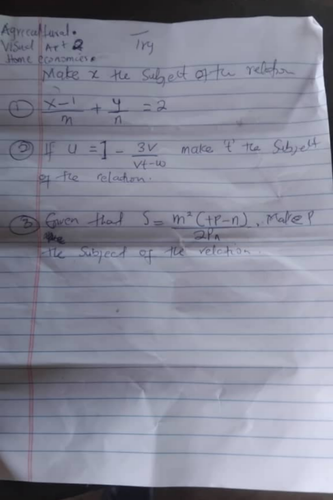 Agricultural.
Visual Art 2
Home economics
Try
Make x the Subject of the relation
① x-1/m + y/n = 2
② If U = 1 - 3V/Vt-w make 't' the Subject
of the relation.
③ Given that S = m²(tp-n)/2pn, Make P
the Subject of the relation.